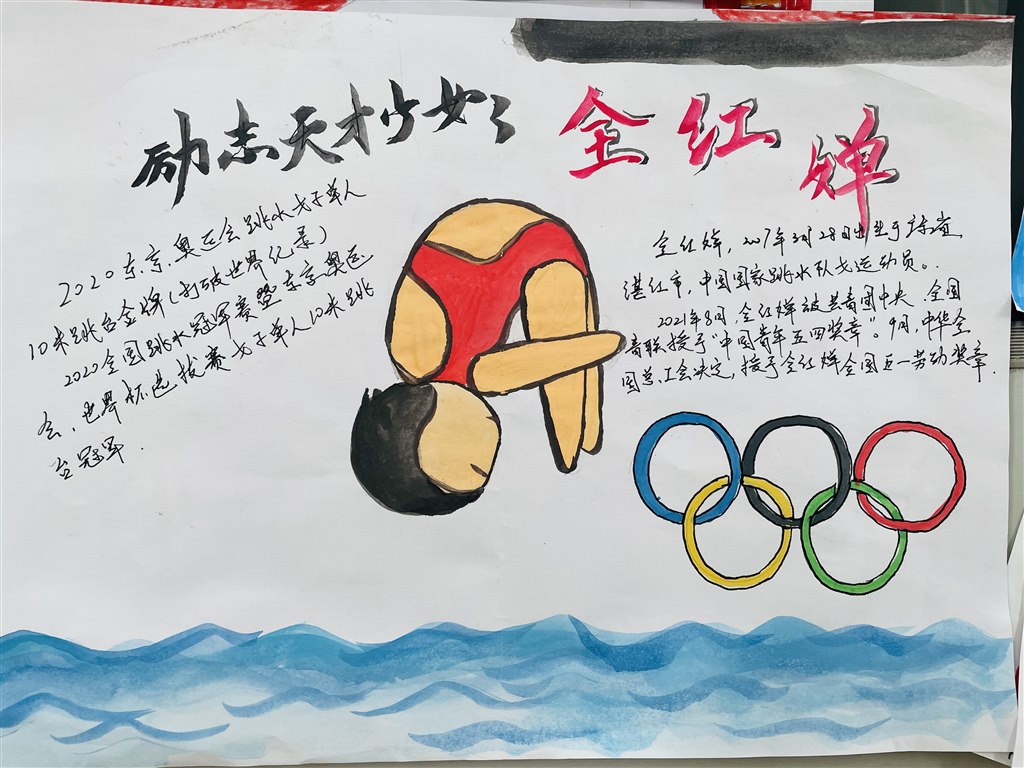 励志天才少女 全红婵
2020东京奥运会跳水女子单人
10米跳台金牌(打破世界纪录)
2020全国跳水冠军赛暨东京奥运
会、世界杯选拔赛女子单人10米跳
台冠军.
全红婵,2007年3月28日出生于广东省
湛江市,中国国家跳水队女运动员。
2021年8月,全红婵被共青团中央、全国
青联授予"中国青年五四奖章"。9月,中华全
国总工会决定,授予全红婵全国五一劳动奖章.